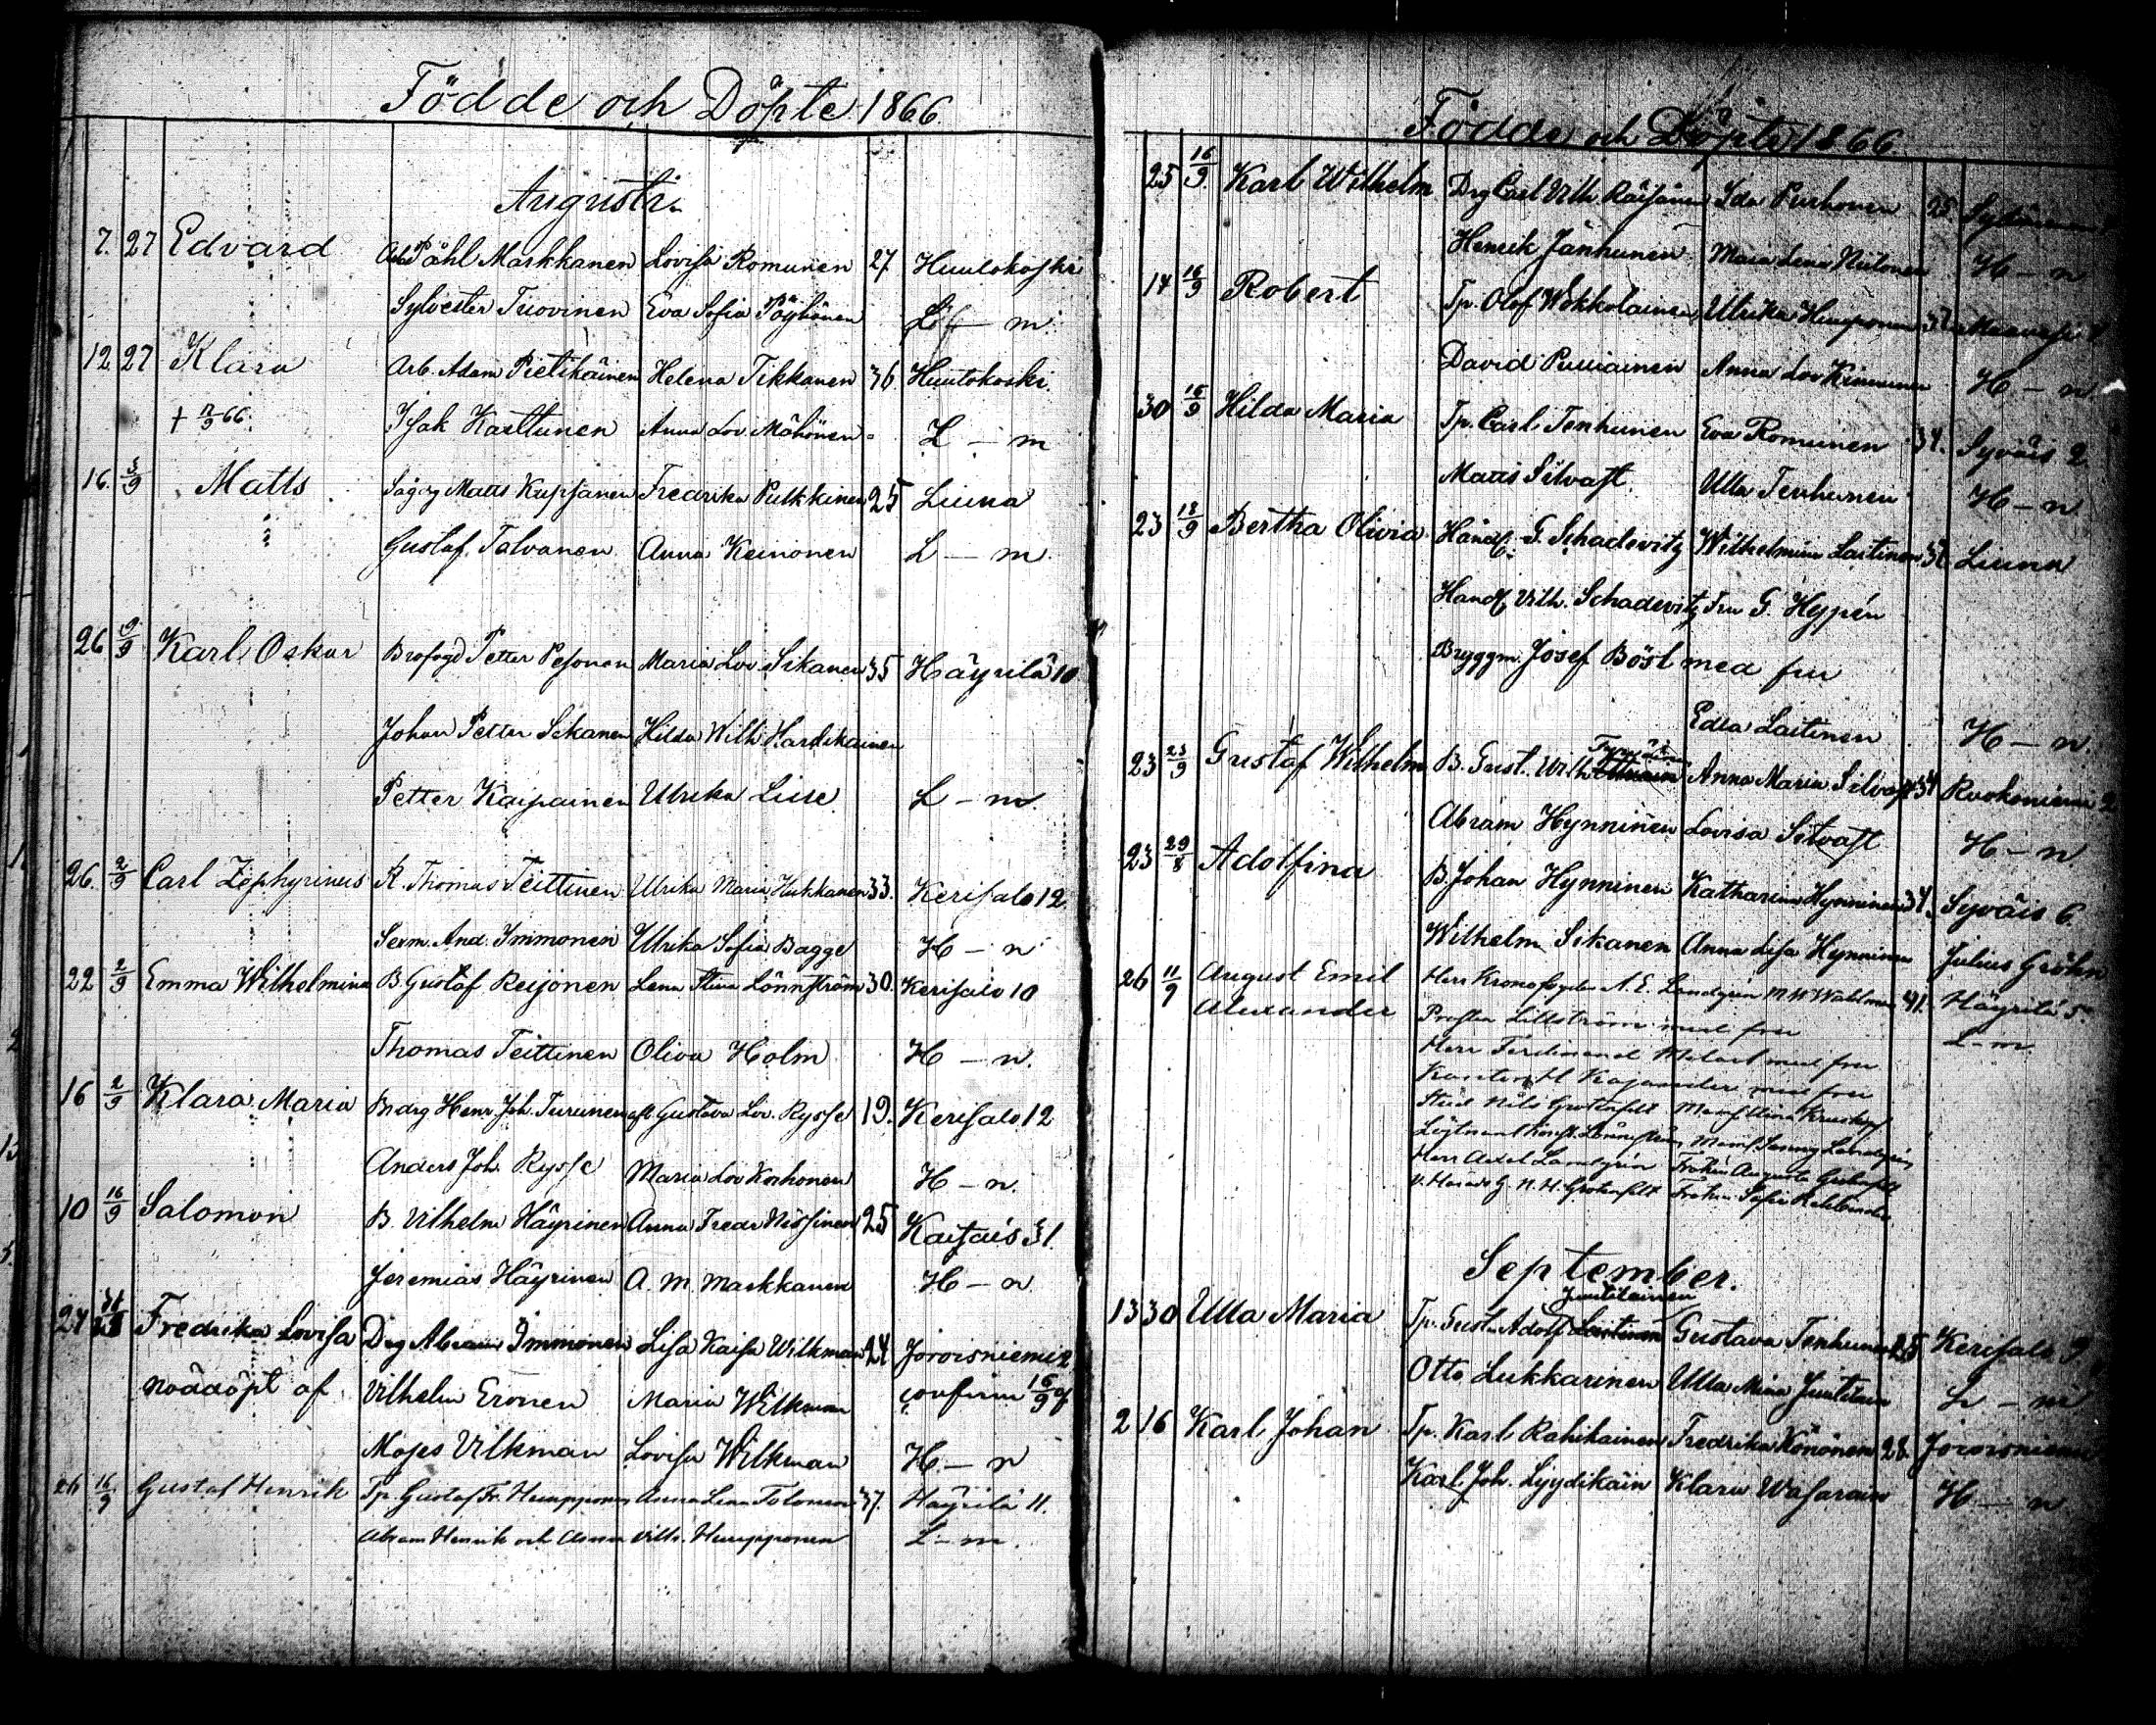 Födde och Döpte 1866
Augusti
7. 27 Edvard Arb Påhl Markkanen Lovisa Romunen 27 Huutokoski
Sylvester Tuovinen Eva Sofia Pöyhönen L – m
12 27 Klara Arb. Adam Pietikäinen Helena Tikkanen 36. Huutokoski
Isak Karttunen Anna Lov. Mähönen L – m
16. 3/9 Matts Matts Kupjänen Fredrika Pulkkinen 25 Liuna
Gustaf Talvanen Anna Keinonen L – m
26 9/9 Karl Oskar Brofogd Petter Pesonen Maria Lov. Sikanen 35 Häyrilä 10
Johan Petter Sikanen Hilda Wilh. Hardikainen
Petter Kaipainen Ulrika Liise L – m
26. 2/9 Carl Zephyrinus R. Thomas Teittinen Ulrika Maria Hukkanen 33. Kerisalo 12
Sexm. And. Immonen Ulrika Sofia Bagge H – n
22 2/9 Emma Wilhelmina B. Gustaf Reijonen Lena Stina Lönnström 30. Kerisalo 10
Thomas Teittinen Oliva Holm H – n.
16 2/9 Klara Maria Bndrg Henr. Joh. Turunen Gustava Lov. Rysse 19. Kerisalo 12
Anders Joh. Rysse Maria Lov Korhonen H – n.
10 16/9 Salomon B. Vilhelm Häyrinen Anna Fredr Nissinen 25 Kaitais 31.
Jeremias Häyrinen A. M. Markkanen H – n
27 Fredrika Lovisa Drg Abram Immonen Lisa Kaisa Wilkman 24 Joroisniemi 2
nöddöpt af Vilhelm Eronen Maria Wilkman confirm 16/9 af
Moses Vilkman Lovisa Wilkman H – n
26 16/9 Gustaf Henrik Tp. Gustaf Fr. Humpponen Anna Lena Tolonen 37. Häyrilä 11.
Abram Henrik och Anna Vilh. Humpponen L – m.
Födde och Döpte 1866
25 16/9 Karl Wilhelm Drg Carl Vilh Räisänen Ida Purhonen 25
Henrik Jänhunen Maria Lena H – n
14 16/9 Robert Tp. Olof Wokkolainen Ulrika Humponen 37
David Pulliainen Anna Lov H – n
30 16/9 Hilda Maria Tp. Carl Tenhunen Eva Romunen 34. Syväis 2.
Matts Silvast Ulla Tenhunen H – n
23 18/9 Bertha Olivia Handl. G. Schadevitz Wilhelmina Laitinen 37 Liuna
Handl. Vilh. Schadevitz Fru G. Hypén
Bryggm. Josef Böst med fru
Edla Laitinen H – n.
23 23/9 Gustaf Wilhelm B. Gust. Wilh Anna Maria Silvast 34 Ruokoniemi 2
Abram Hynninen Lovisa Silvast H – n
23 29/8 Adolfina B. Johan Hynninen Katharina Hynninen 34. Syväis 6.
Wilhelm Sikanen Anna Lisa Hynninen Julius Gröhn
26 11/9 August Emil Herr Kronofogden A. E. Landgren M. W. Wahlman 41. Häyrilä 5.
Alexander Prosten Lillström med fru L – m.
Herr Ferdinand Molart med fru
Kajander med fru
Stud Nils Grotenfelt
Löjtnant Lönnström Landgren
Herr Axel Landgren Fröken Augusta Grotenfelt
V. Härads H. N. H. Grotenfelt Fröken Sofia Rehbinder
September.
Juutilainen
13 30 Ulla Maria Tp. Gust. Adolf Laitinen Gustava Tenhunen 25 Kerisalo 9
Otto Lukkarinen Ulla Mina Juutilain L – m
2 16 Karl Johan Tp. Karl Rahikainen Fredrika Könönen 28. Joroisniemi
Karl Joh. Lyydikäin Klara Wasarain H – n